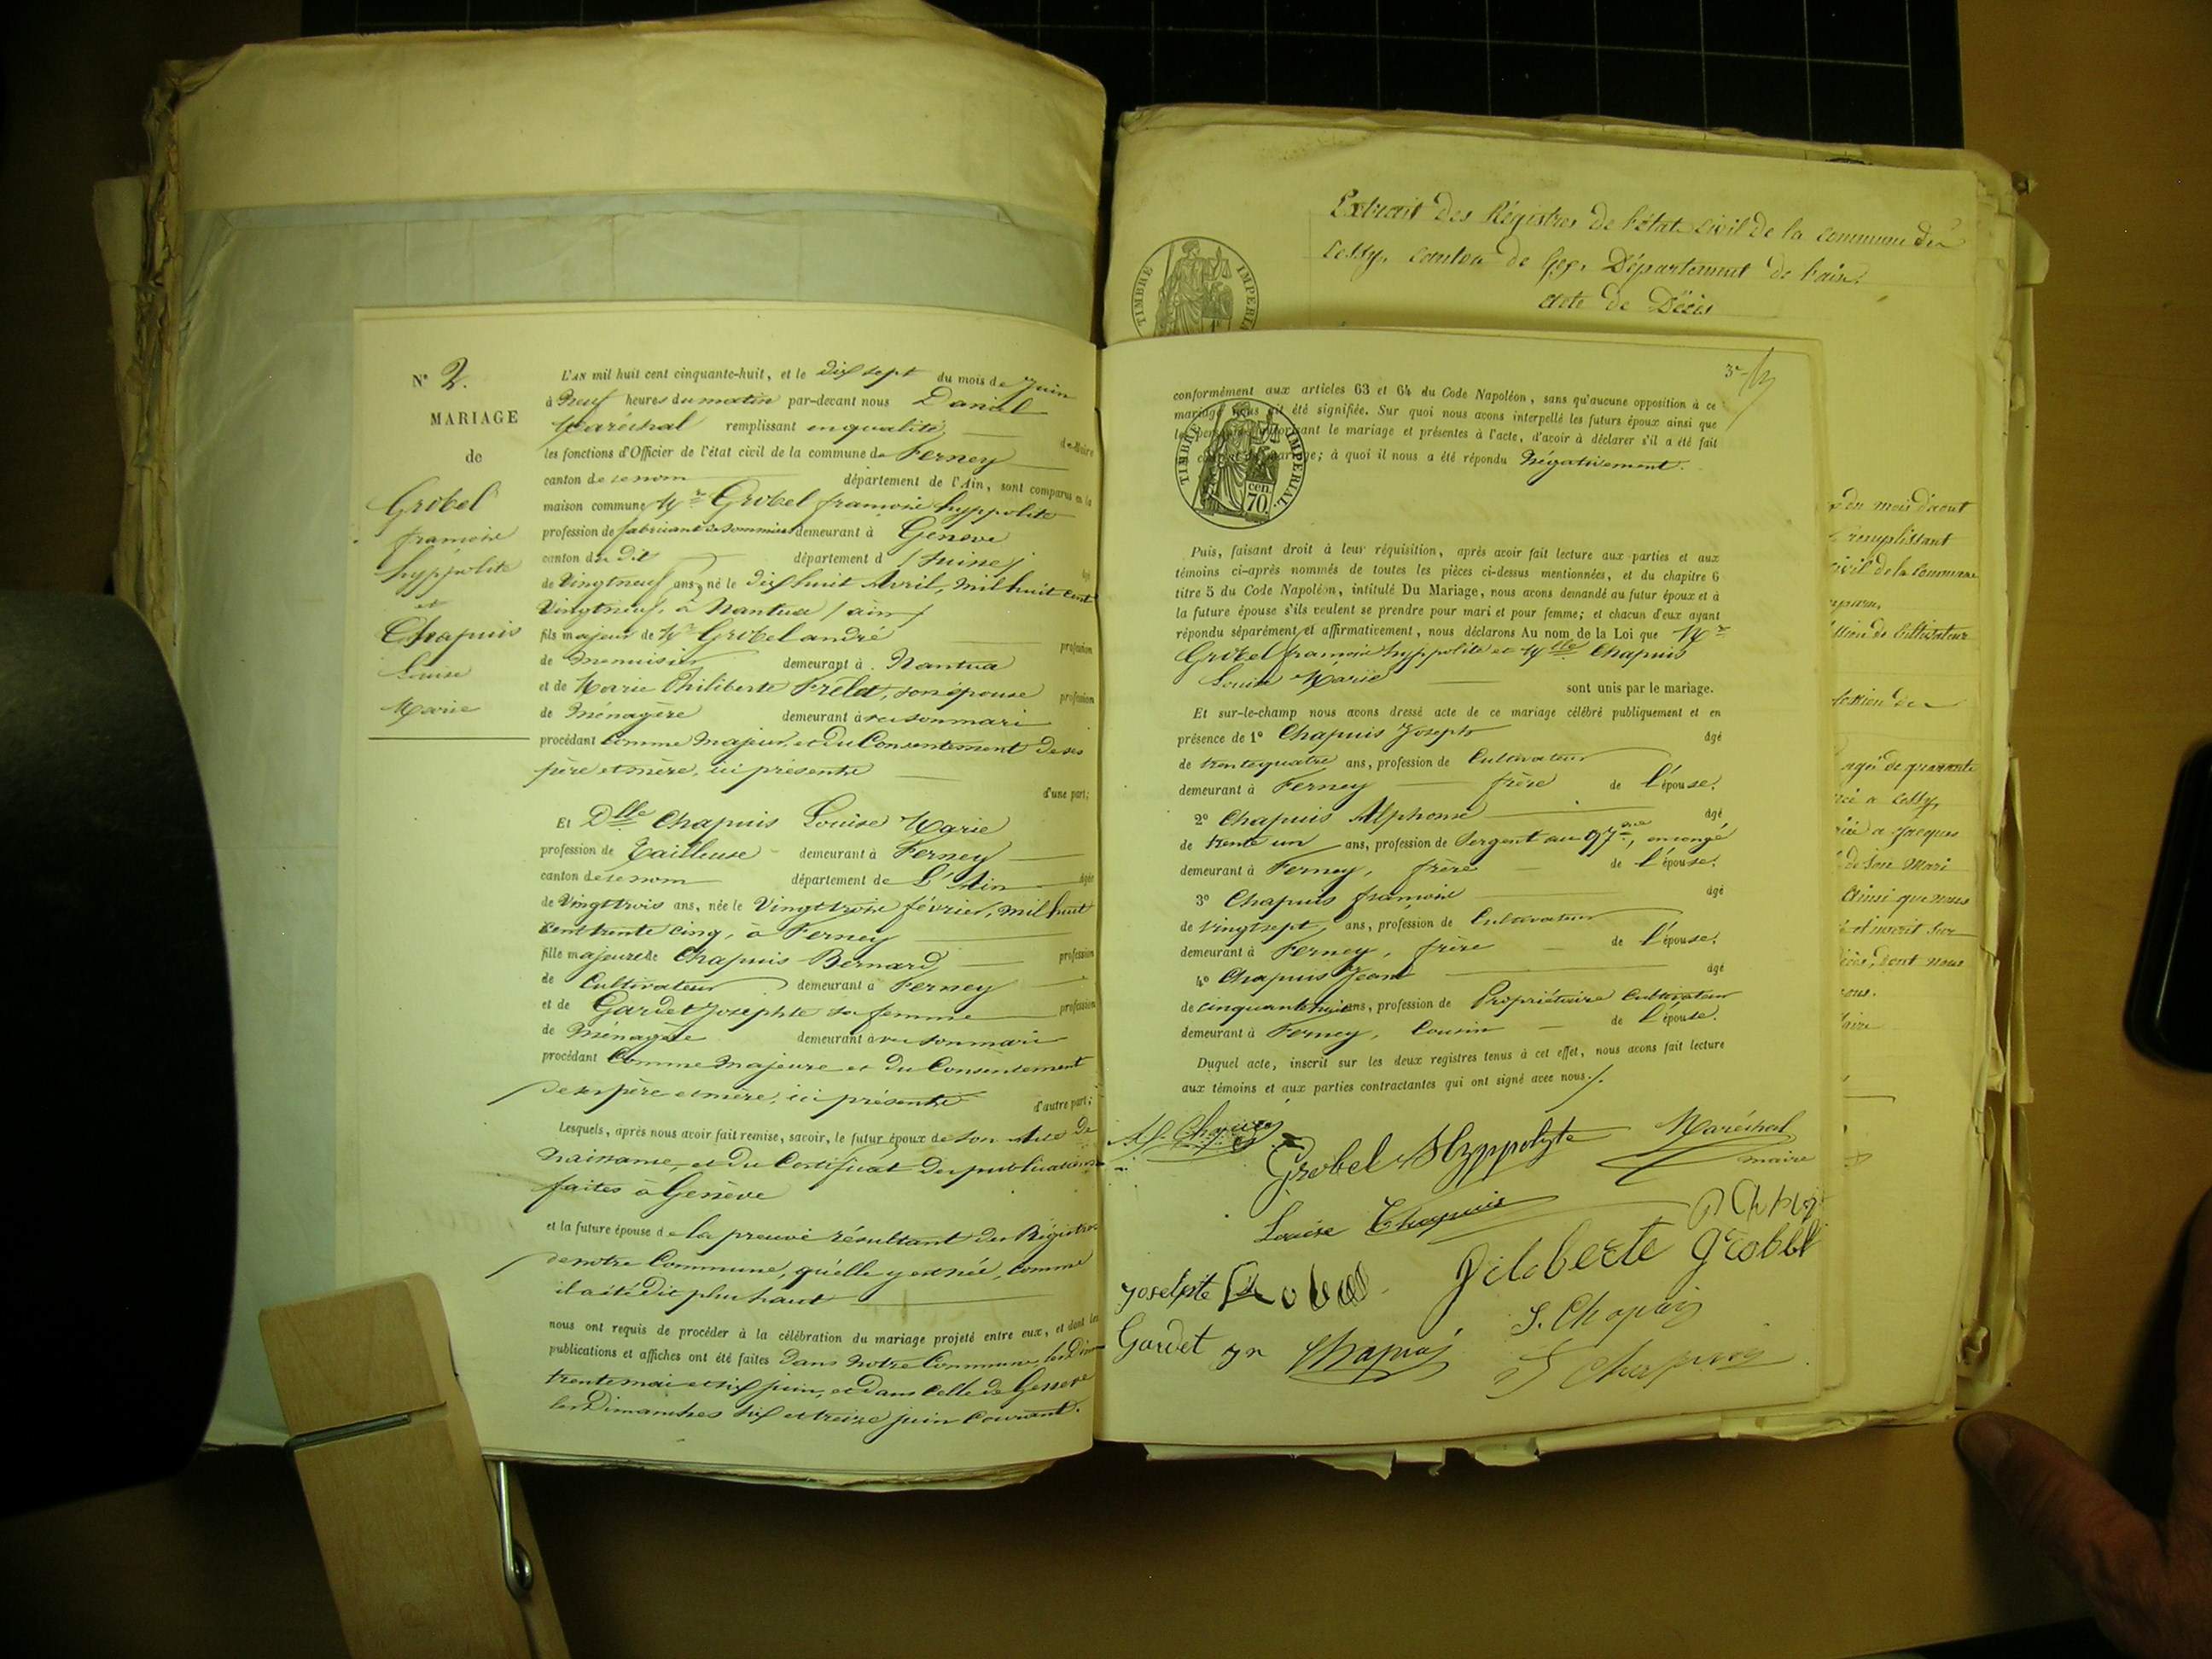 N° 2.
MARIAGE
de
Grobel
françois
hyppolite
et
Chapuis
Louise
Marie
L'AN mil huit cent cinquante-huit, et le dix sept du mois de Juin
à Neuf heures du matin par-devant nous Daniel
Maréchal remplissant en qualité de Maire
les fonctions d'Officier de l'état civil de la commune de Ferney
canton de ce nom département de l'Ain, sont comparus en la
maison commune Mr Grobel françois hyppolite
profession de fabricant de sommiers demeurant à Genève
canton du dit département d (Suisse)
de Vingtneuf ans, né le dix huit Avril, mil huit cent
Vingtneuf, à Nantua (ain)
fils majeur de Mr Grobel andré profession
de menuisier demeurant à Nantua
et de Marie Philiberte Frelet, son épouse profession
de Ménagère demeurant à vec son mari
procédant Comme Majeur, et du Consentement de ses
père et mère, ici présents
d'une part;
Et Dlle Chapuis Louise Marie
profession de Tailleuse demeurant à Ferney
canton de ce nom département de L'Ain âgée
de Vingttrois ans, née le Vingttrois février, mil huit
Cent trente Cinq, à Ferney
fille majeure de Chapuis Bernard profession
de Cultivateur demeurant à Ferney
et de Gardet Josephte sa femme profession
de Ménagère demeurant à vec son mari
procédant Comme Majeure et du Consentement
de ses père et mère, ici présents d'autre part;
Lesquels, après nous avoir fait remise, savoir, le futur époux de Son Acte de
Naissance, et du Certificat des publications
faites à Genève
et la future épouse de la preuve résultant des Régistres
de notre Commune, qu'elle y est née, comme
il a été dit plus haut
nous ont requis de procéder à la célébration du mariage projeté entre eux, et dont les
publications et affiches ont été faites Dans Notre Commune, les Dim
trente mai et six juin, et dans Celle de Genève
les Dimanches six et treize juin Courant.
Extrait des Régistres de l'état civil de la commune de
Cessy, Canton de Gex, Département de l'ain.
acte de Décès
TIMBRE IMPERIAL
3e
conformément aux articles 63 et 64 du Code Napoléon, sans qu'aucune opposition à ce
mariage nous ait été signifiée. Sur quoi nous avons interpellé les futurs époux ainsi que
les personnes autorisant le mariage et présentes à l'acte, d'avoir à déclarer s'il a été fait
contrat de mariage; à quoi il nous a été répondu Négativement.
TIMBRE IMPERIAL. cen. 70.
Puis, faisant droit à leur réquisition, après avoir fait lecture aux parties et aux
témoins ci-après nommés de toutes les pièces ci-dessus mentionnées, et du chapitre 6
titre 5 du Code Napoléon, intitulé Du Mariage, nous avons demandé au futur époux et à
la future épouse s'ils veulent se prendre pour mari et pour femme; et chacun d'eux ayant
répondu séparément et affirmativement, nous déclarons Au nom de la Loi que Mr
Grobel françois hyppolite et Mlle Chapuis
Louise Marie sont unis par le mariage.
Et sur-le-champ nous avons dressé acte de ce mariage célébré publiquement et en
présence de 1° Chapuis Joseph âgé
de trentequatre ans, profession de Cultivateur
demeurant à Ferney frère de l'épouse.
2° Chapuis Alphonse âgé
de trente un ans, profession de Sergent au 97me, en congé
demeurant à Ferney, frère de l'épouse.
3° Chapuis françois âgé
de vingtsept ans, profession de Cultivateur
demeurant à Ferney, frère de l'épouse.
4° Chapuis Jean âgé
de cinquantehuit ans, profession de Propriétaire Cultivateur
demeurant à Ferney, Cousin de l'épouse.
Duquel acte, inscrit sur les deux registres tenus à cet effet, nous avons fait lecture
aux témoins et aux parties contractantes qui ont signé avec nous./.
Al. Chapuis
Grobel Hyppolyte
Maréchal
maire
Louise Chapuis
Jiliberte Grobel
Josephte
Gardet
Chapuis
J. Chapuis
F Chapuis
du mois d'aout
remplissant
civil de la Commune
ession de Cultivateur
ession de
agé de quarante
née a Cessy,
iée a Jacques
de Son Mari
Ainsi que nous
et inscrit Sur
écès, dont nous
ous.
Maire